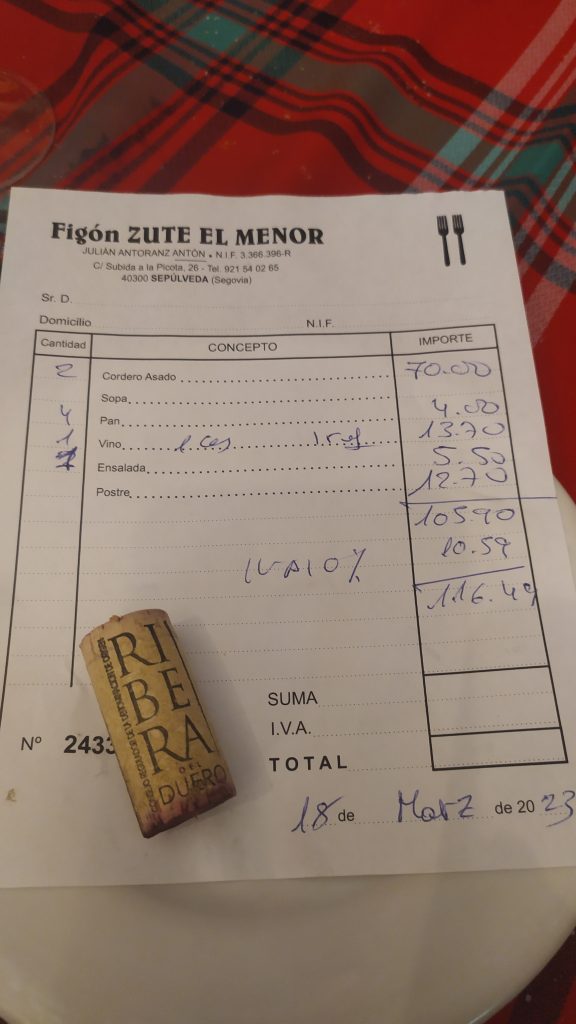 Figón ZUTE EL MENOR
JULIÁN ANTORANZ ANTÓN • N.I.F. 3.366.396-R
C/ Subida a la Picota, 26 - Tel. 921 54 02 65
40300 SEPÚLVEDA (Segovia)
Sr. D.
Domicilio N.I.F.
Cantidad CONCEPTO IMPORTE
2 Cordero Asado 70.00
Sopa
4 Pan 4.00
1 Vino 13.70
Ensalada 5.50
Postre 12.70
105.90
10.59
IVA 10%
116.49
SUMA
I.V.A.
TOTAL
Nº 2433
18 de Marz de 2023
RI
BE
RA
DEL
DUERO